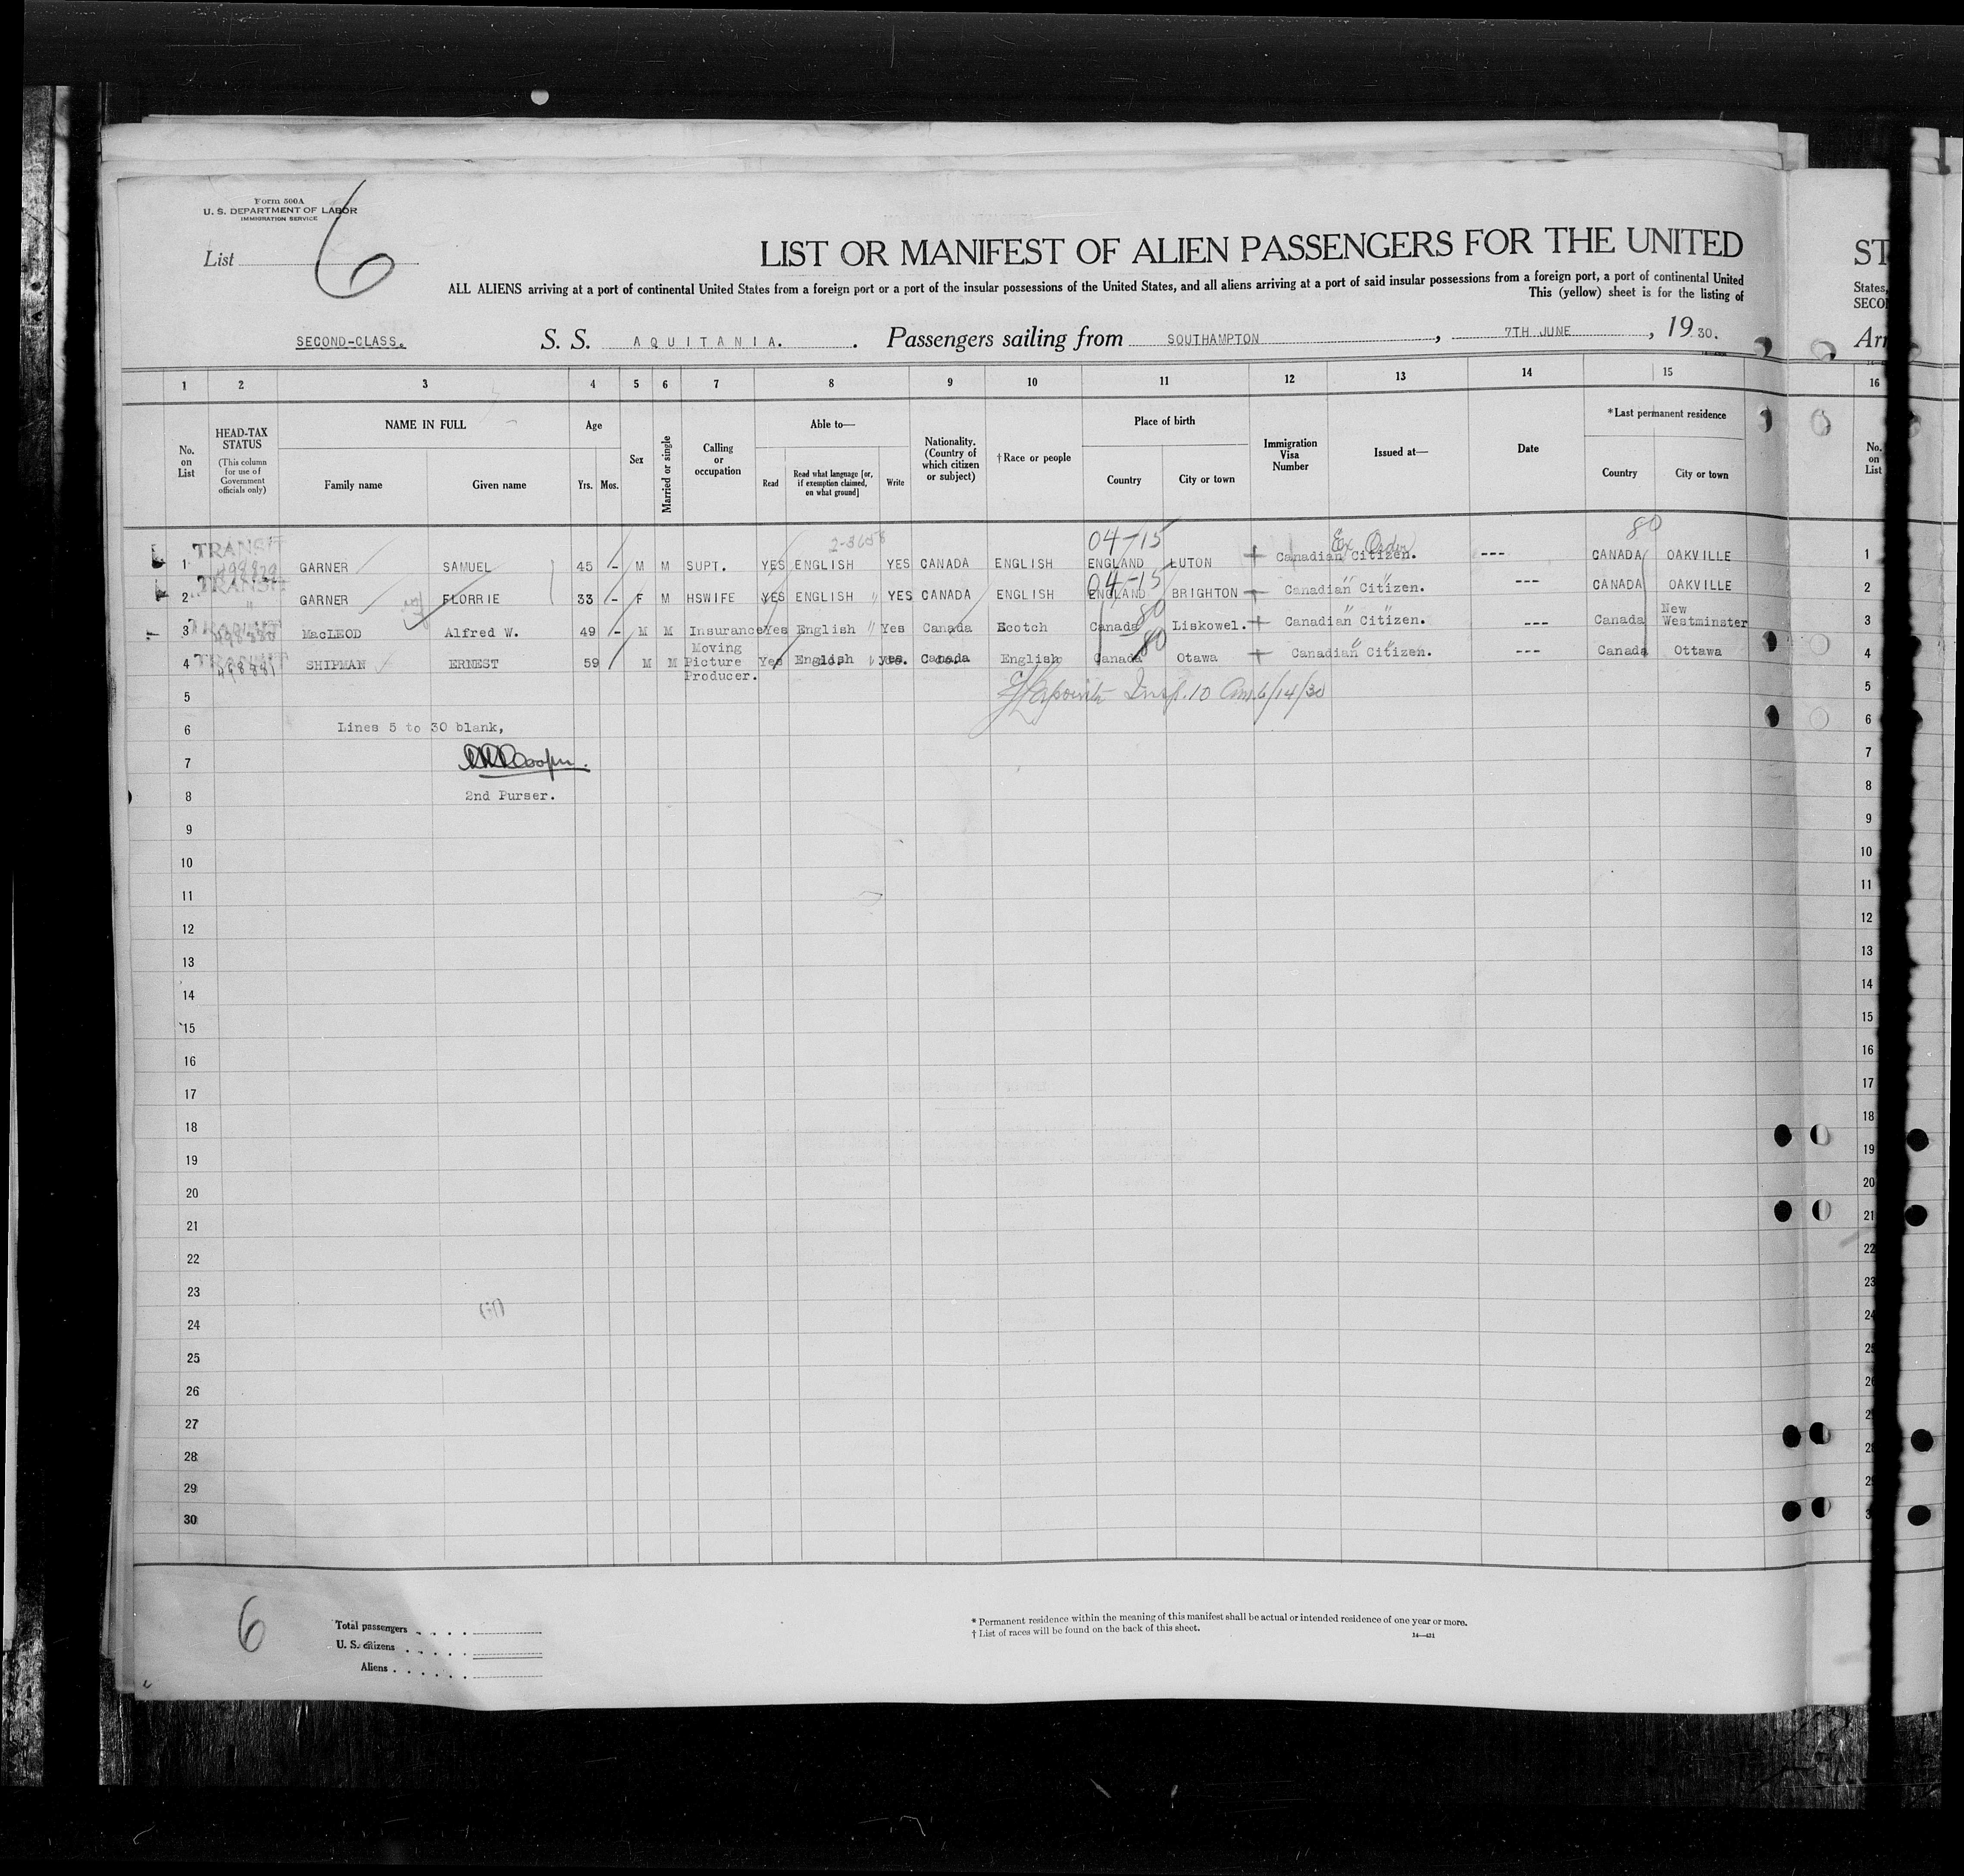 Form 500A
U. S. DEPARTMENT OF LABOR
IMMIGRATION SERVICE
List 6
LIST OR MANIFEST OF ALIEN PASSENGERS FOR THE UNITED
ST
ALL ALIENS arriving at a port of continental United States from a foreign port or a port of the insular possessions of the United States, and all aliens arriving at a port of said insular possessions from a foreign port, a port of continental United
States,
This (yellow) sheet is for the listing of
SECO
SECOND-CLASS. S. S. AQUITANIA. Passengers sailing from SOUTHAMPTON, 7TH JUNE, 1930.
Arr
1 2 3 4 5 6 7 8 9 10 11 12 13 14 15 16
No. on List
HEAD-TAX STATUS
(This column for use of Government officials only)
NAME IN FULL
Family name Given name
Age
Yrs. Mos.
Sex
Married or single
Calling or occupation
Able to—
Read
Read what language [or, if exemption claimed, on what ground]
Write
Nationality. (Country of which citizen or subject)
†Race or people
Place of birth
Country City or town
Immigration Visa Number
Issued at—
Date
*Last permanent residence
Country City or town
No. on List
04-15 Ex. Order 80
TRANSIT
1 GARNER SAMUEL 45 - M M SUPT. YES ENGLISH YES CANADA ENGLISH ENGLAND LUTON Canadian Citizen. --- CANADA OAKVILLE 1
TRANSIT 04-15
2 GARNER FLORRIE 33 - F M HSWIFE YES ENGLISH " YES CANADA ENGLISH ENGLAND BRIGHTON Canadian Citizen. --- CANADA OAKVILLE 2
TRANSIT 80
3 MacLEOD Alfred W. 49 - M M Insurance Yes English " Yes Canada Scotch Canada Liskowel. Canadian Citizen. --- Canada New Westminster 3
TRANSIT 80
4 SHIPMAN ERNEST 59 M M Moving Picture Producer. Yes English " yes. Canada English Canada Otawa Canadian Citizen. --- Canada Ottawa 4
5 Insp. 6/14/30 5
6 Lines 5 to 30 blank, 6
7 Cooper. 7
8 2nd Purser. 8
9 9
10 10
11 11
12 12
13 13
14 14
15 15
16 16
17 17
18 18
19 19
20 20
21 21
22 22
23 23
24 24
25 25
26
27
28
29
30
6
Total passengers
U. S. citizens
Aliens
* Permanent residence within the meaning of this manifest shall be actual or intended residence of one year or more.
† List of races will be found on the back of this sheet.